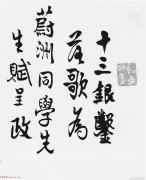 十三銀鑿
落歌為
蔚洲同學先
生賦呈政